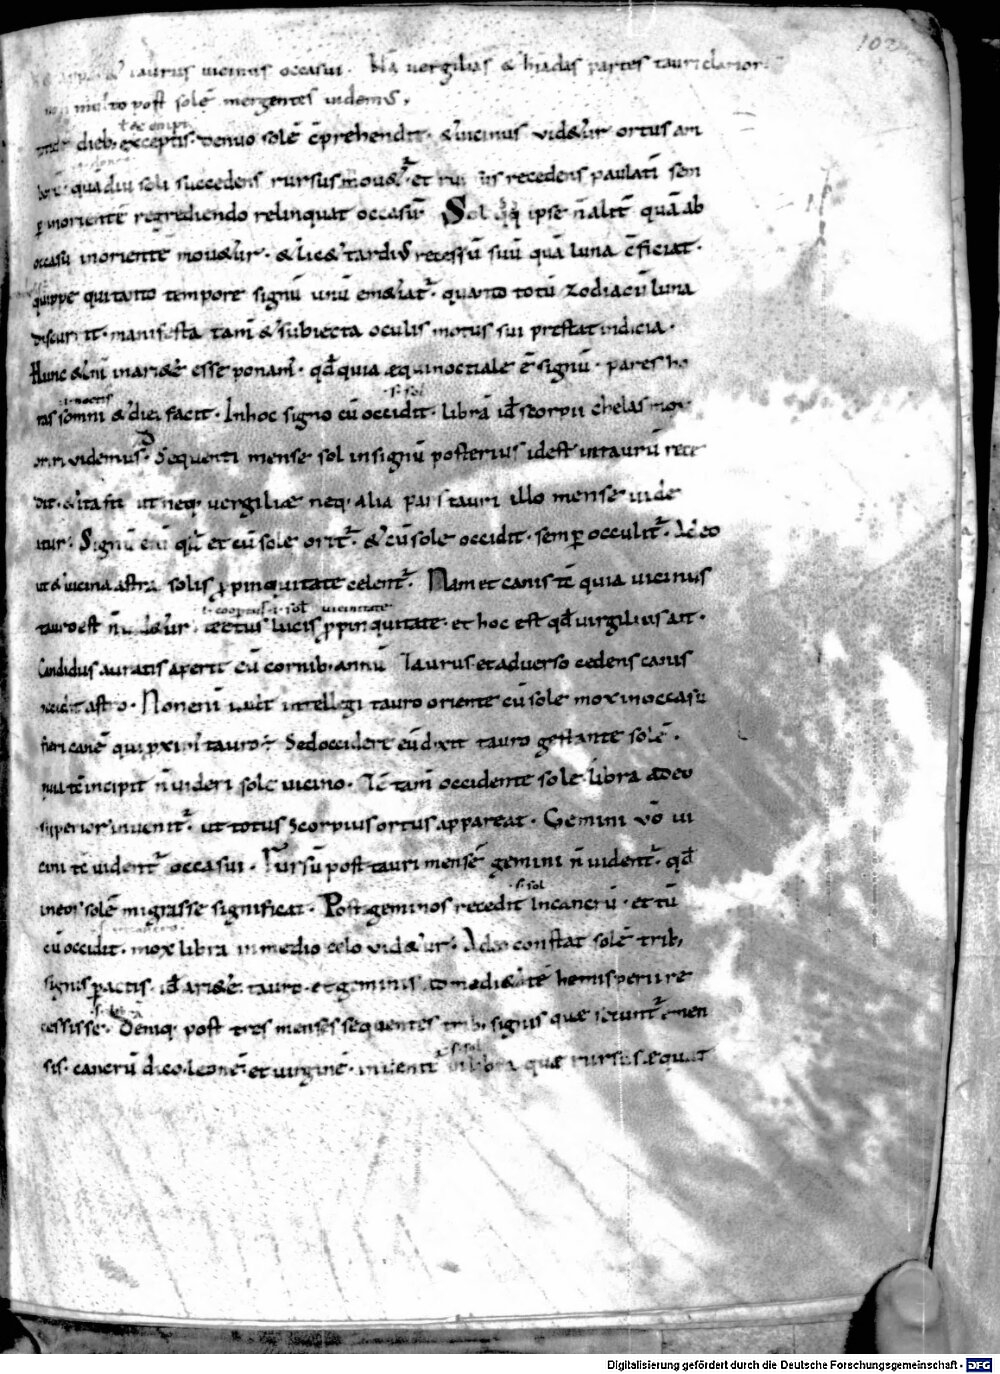 102
taurus uicinus occasui. Nā uergilias & hiadas partes tauri clarior
non multo post solē mergentes uidem᷒.
ł ac empt
dieb; exceptis. denuo solē c̄prehendit. & uicinus uid&ur ortus ari
quādiu soli succedens rursus mou&᷒. et recedens paulatī sem
ꝑ inorientē regrediendo relinquat occasū. Sol qq; ipse n̄ alit̄ quā ab
occasu inorientē mou&ur. & lic& tardi᷒ recessū suū quā luna c̄ficiat.
quippe qui tanto tempore signū unū em&iat᷒. quanto totū zodiacū luna
discurrit. manifesta tam̄ & subiecta oculis motus sui prestat indicia.
Hunc &nī inari&e esse ponam᷒. qđ quia æquinoctiale ē signū. pares ho
.i. noctis .s. sol
ras somni & diei facit. Inhoc signo cū occidit. librā idē scorpii chelas mox
oriri uidemus. Sequenti mense sol insignū posterius idest intaurū rece
dit. & ita fit ut neq; uergiliæ neq; alia pars tauri illo mense uide
atur. Signū enī qđ et cū sole orit᷒. & cū sole occidit. semꝑ occulit᷒. Adeo
ut & uicina astra solis ꝓpinquitate celent᷒. Nam et canis tē quia uicinus
.i. coopertus .i. sol uicinitate
tauro est n̄ uid&ur. tectus lucis ꝓpinquitate. et hoc est qđ uirgilius ait.
Candidus auratis aperit cū cornib; annū Taurus et aduerso cedens canis
occidit astro. Non enī uult intellegi tauro oriente cū sole mox inoccasū
fieri canē qui ꝓxim᷒ tauro ē. Sed occidere eū dixit tauro gestante solē.
quia tē incipit n̄ uideri sole uicino. Tē tam̄ occidente sole libra adeo
superior inuenit᷒. ut totus Scorpius ortus appareat. Gemini uō ui
cini tē uident᷒ occasui. Rursū post tauri mensē gemini n̄ uident᷒. qđ
.s. sol
ineos solē migrasse significat. Post geminos recedit Incancrū. et tū
cū occidit. mox libra in medio celo uid&ur. Adeo constat solē trib;
signis ꝑactis. idē ari&e. tauro. et geminis. ad medi&atē hemisperii re
cessisse. Deniq; post tres menses sequentes trib; signis quæ secunt᷒ emen
.s. sol
sis. cancrū dico. leonē. et uirginē. inuenit᷒ in libra quæ rursus æquat
Digitalisierung gefördert durch die Deutsche Forschungsgemeinschaft - DFG